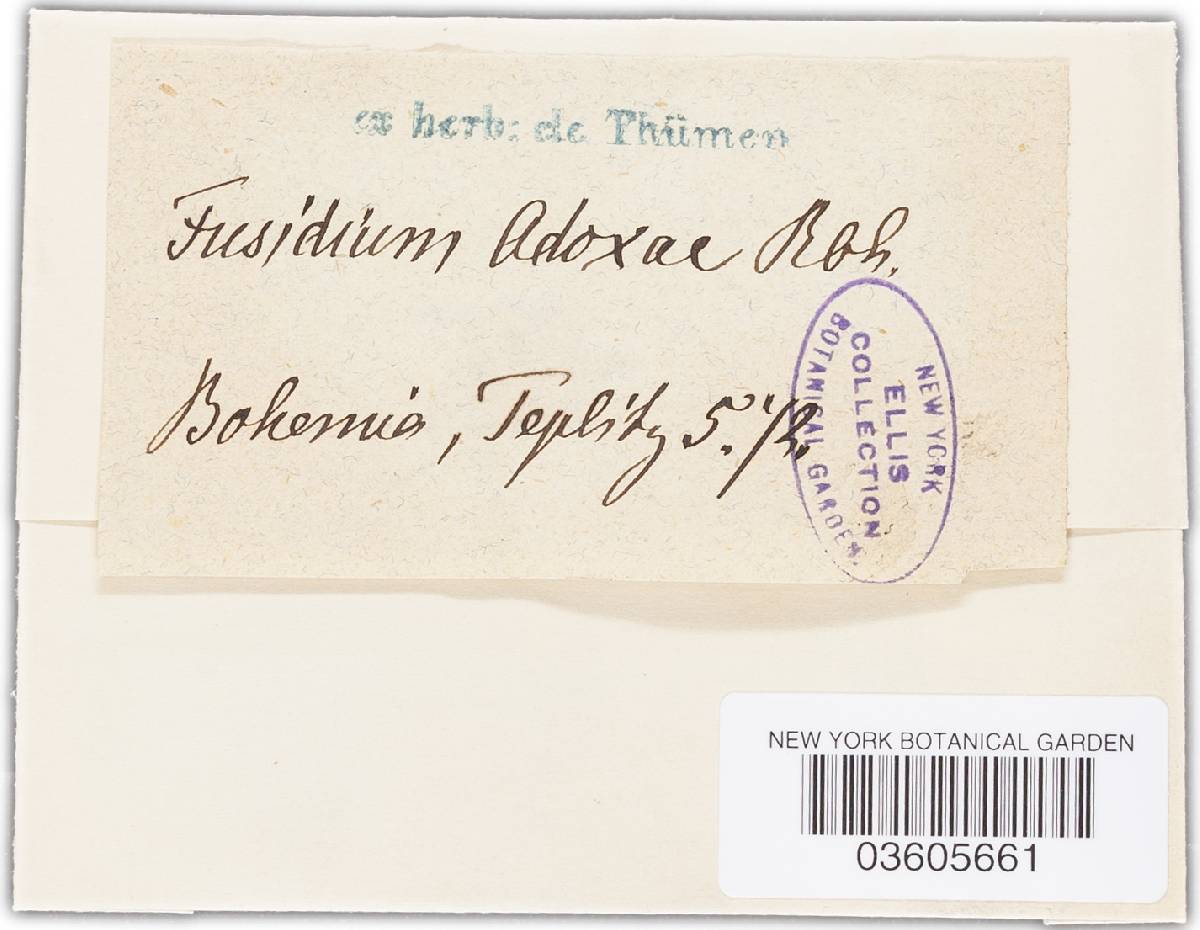 ex herb: de Thümen
Fusidium Adoxae Rbh.
Bohemia, Teplitz 5. 72.
NEW YORK
ELLIS
COLLECTION
BOTANICAL GARDEN.
NEW YORK BOTANICAL GARDEN
03605661